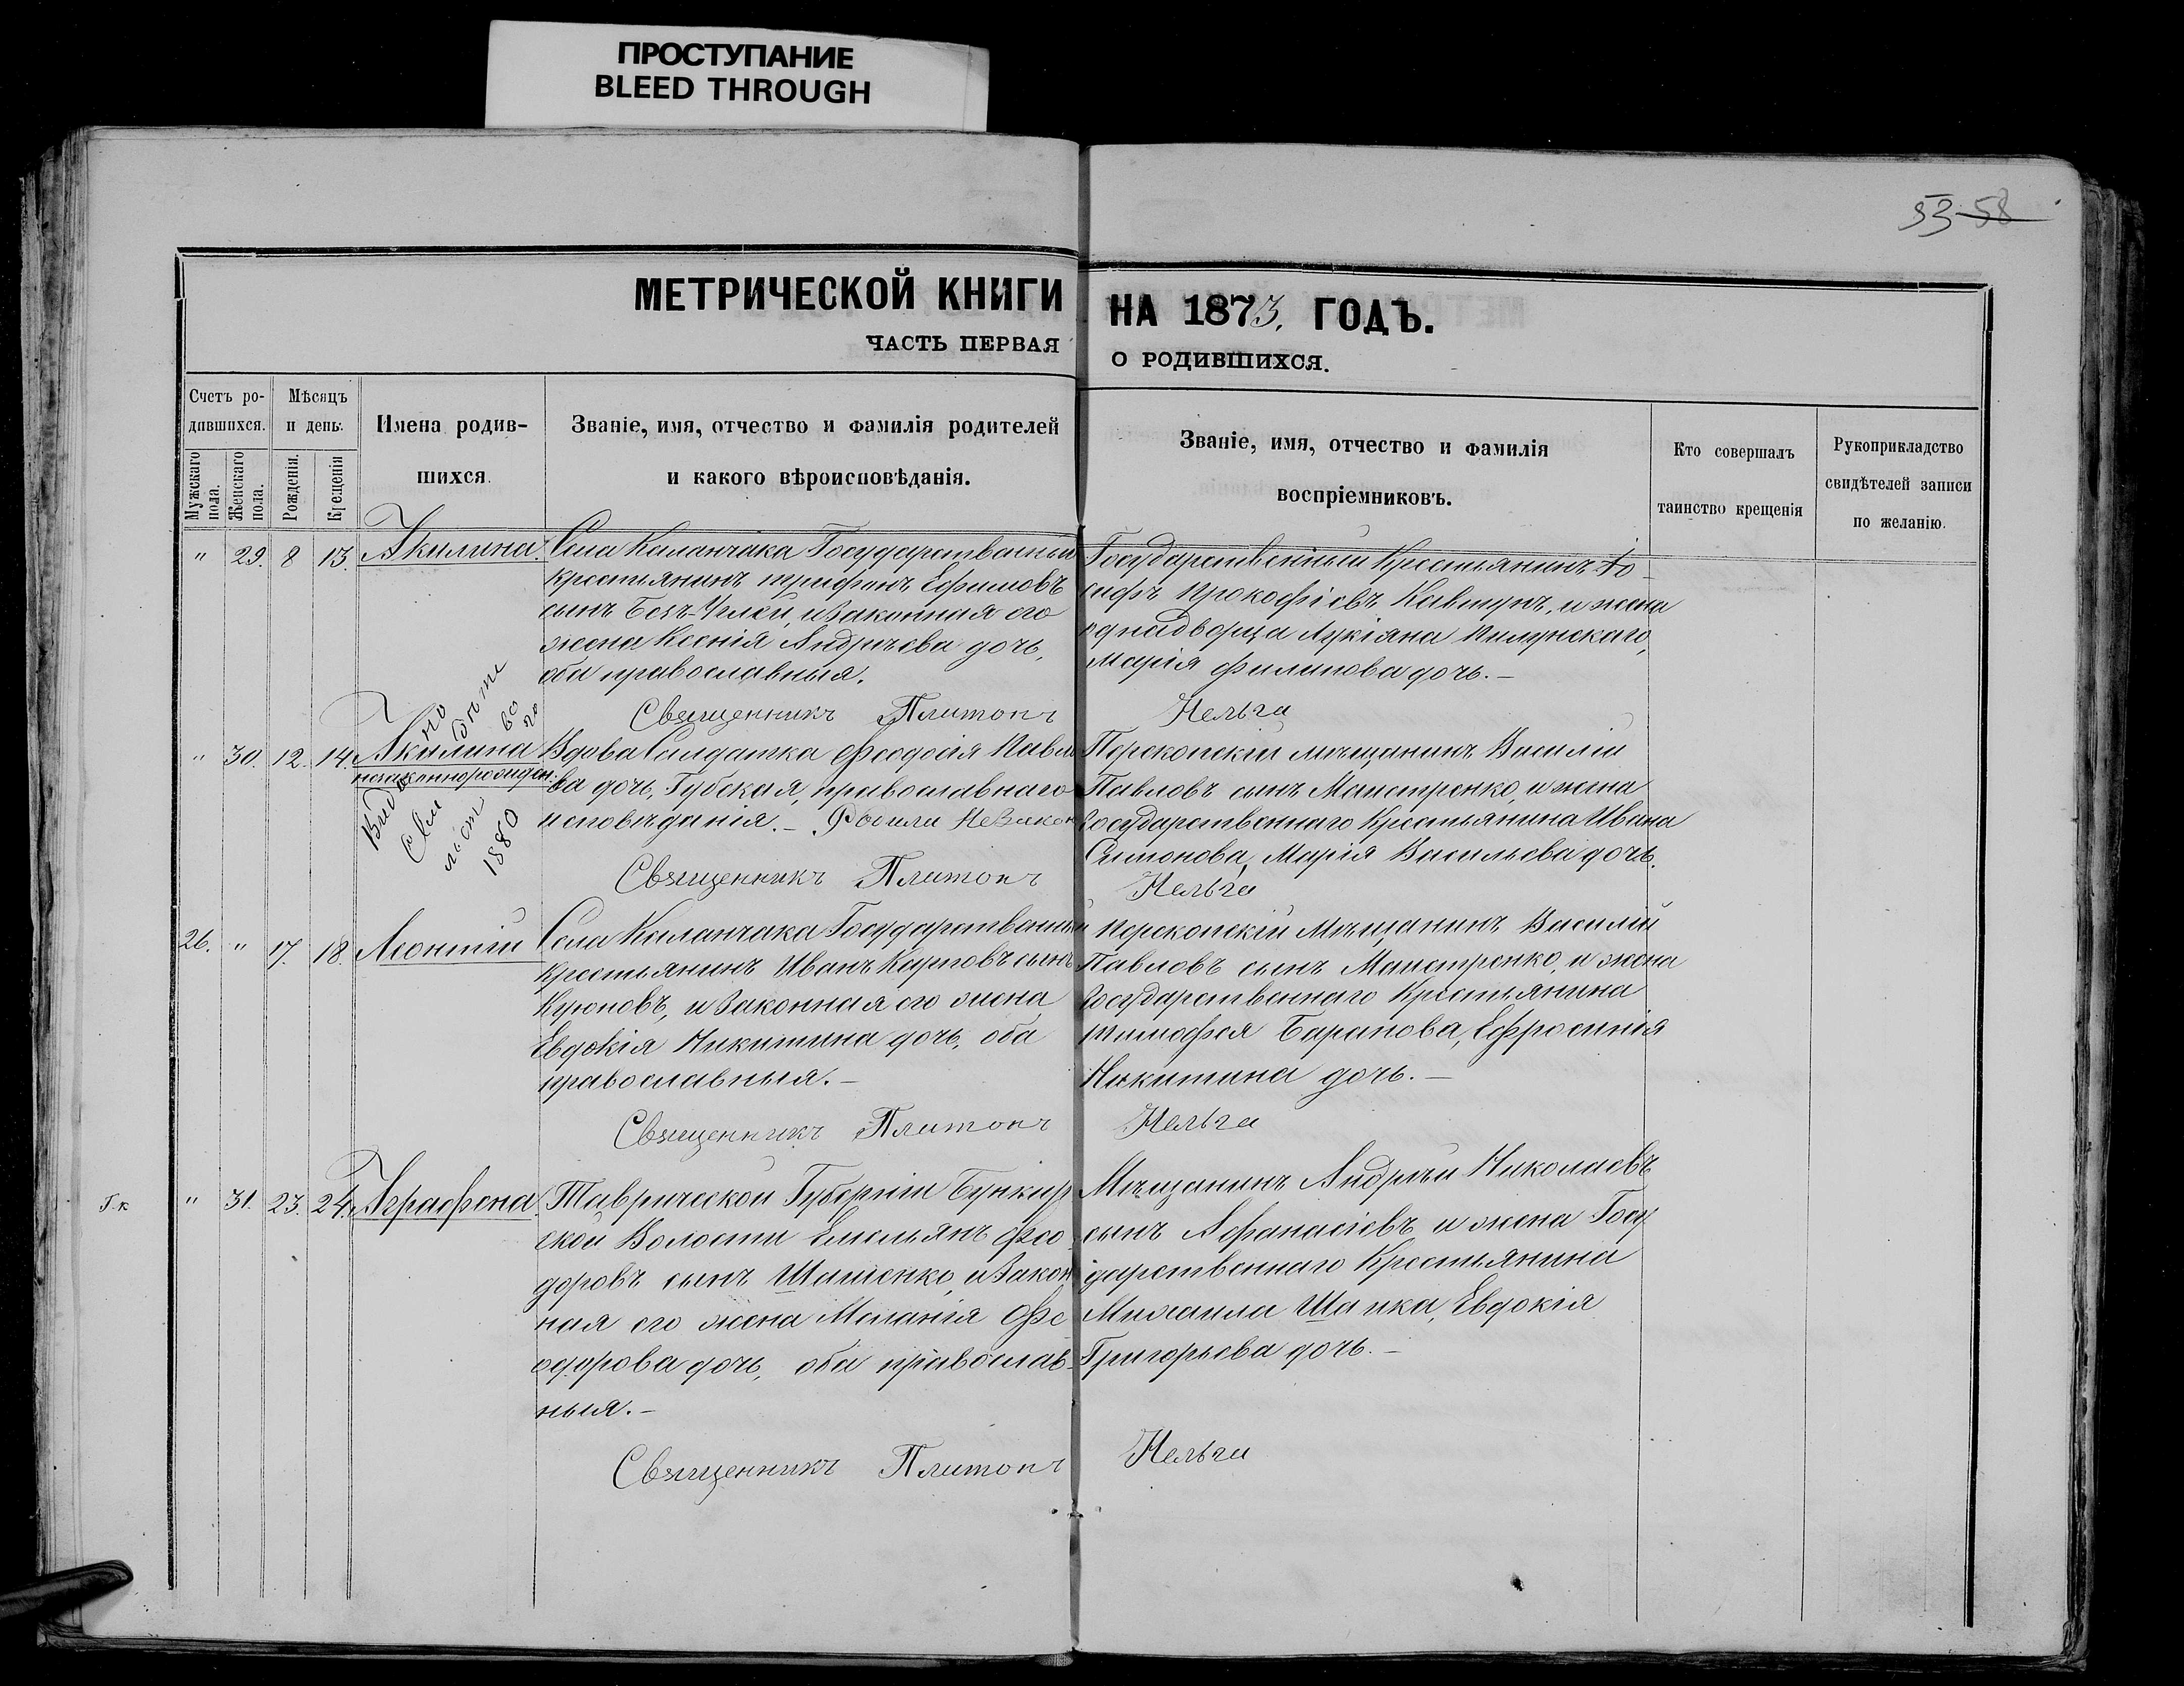 ПРОСТУПАНИЕ
BLEED THROUGH
53 58
МЕТРИЧЕСКОЙ КНИГИ НА 1873. ГОДЪ.
ЧАСТЬ ПЕРВАЯ О РОДИВШИХСЯ.
Счетъ ро-
дившихся.
Мужскаго пола.
Женскаго пола.
Мѣсяцъ
и день.
Рожденія.
Крещенія
Имена родив-
шихся.
Званіе, имя, отчество и фамилія родителей
и какого вѣроисповѣданія.
Званіе, имя, отчество и фамилія
воспріемниковъ.
Кто совершалъ
таинство крещенія
Рукоприкладство
свидѣтелей записи
по желанію.
" 29. 8 13. Акилина.
Села Каланчака Государственный
крестьянинъ Трифонъ Ефимовъ
сынъ Безъ-Углей, и Законная его
жена Ксенія Андрѣева дочь,
оба православныя.
Государственный Крестьянинъ Іо-
сифъ Прокофіевъ Кавтунъ, и жена
однадворца Лукіяна Пилунскаго,
Марія Филипова дочь. –
Священникъ Платонъ Нельга
" 30. 12. 14. Акилина
незаконнорожден.
Вдова Салдатка Феодосія Павло
ва дочь, Губская, православнаго
исповѣданія. –
Перекопскій мѣщанинъ Василій
Павловъ сынъ Маистренко, и жена
Государственнаго Крестьянина Ивана
Симонова, Марія Васильева дочь.
1880
Священникъ Платонъ Нельга
26. " 17. 18. Леонтій
Села Каланчака Государственный
крестьянинъ Иванъ Карповъ сынъ
Куюновъ, и Законная его жена
Евдокія Никитина дочь, оба
православныя. –
Перекопскій Мѣщанинъ Василій
Павловъ сынъ Маистренко, и жена
Государственнаго Крестьянина
Тимофея Баранова, Ефросинія
Никитина дочь. –
Священникъ Платонъ Нельга
Г.к " 31. 23. 24. Аграфена.
Таврической Губерніи
ской Волости Емельянъ Фео
доровъ сынъ Шашенко, и Закон
ная его жена Меланія Фе
одорова дочь, оба православ-
ныя. –
Мѣщанинъ Андрѣй Николаевъ
сынъ Афанасіевъ и жена Госу
дарственнаго Крестьянина
Михаила Шапка, Евдокія
Григорьева дочь. –
Священникъ Платонъ Нельга